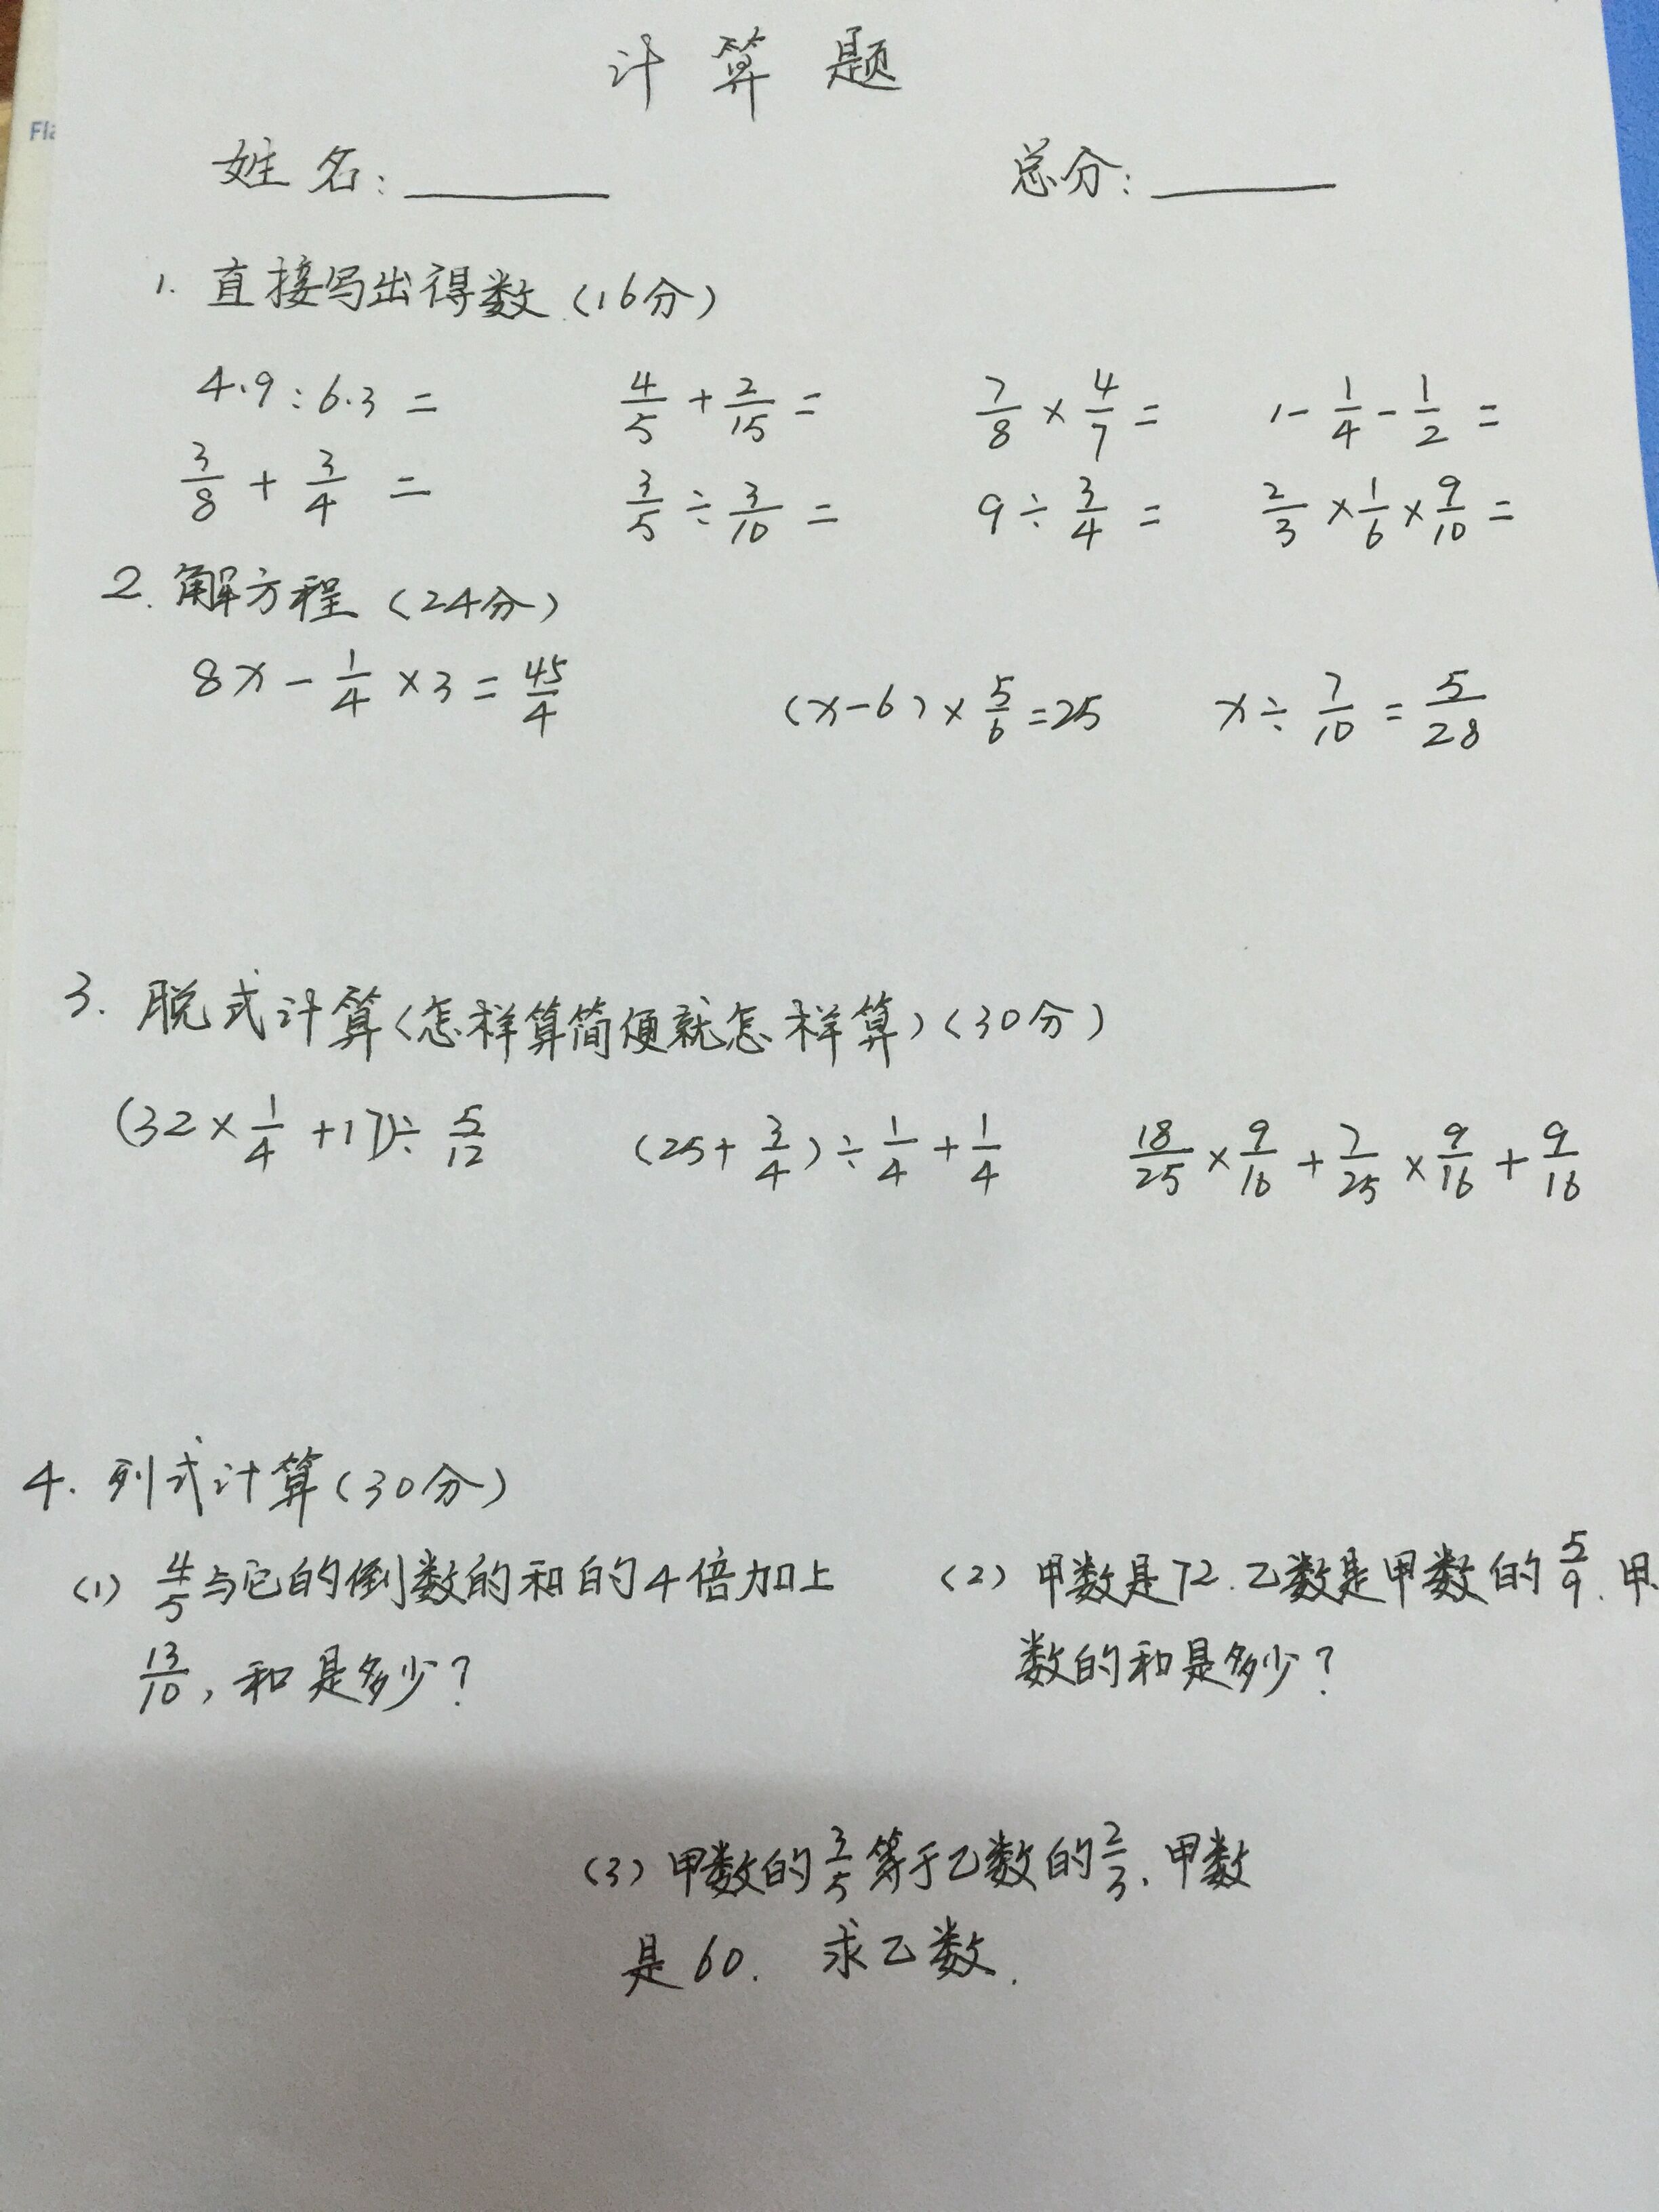 Fla
计算题
姓名：______ 总分：______
1. 直接写出得数（16分）
4.9:6.3= 4/5+2/15= 7/8×4/7= 1-1/4-1/2=
3/8+3/4= 3/5÷3/10= 9÷3/4= 2/3×1/6×9/10=
2. 解方程（24分）
8x-1/4×3=45/4 (x-6)×5/6=25 x÷7/10=5/28
3. 脱式计算（怎样算简便就怎样算）（30分）
(32×1/4+17)÷5/12 (25+3/4)÷1/4+1/4 18/25×9/16+7/25×9/16+9/16
4. 列式计算（30分）
（1）4/5与它的倒数的和的4倍加上
13/10，和是多少？
（2）甲数是72.乙数是甲数的5/9.甲
数的和是多少？
（3）甲数的3/5等于乙数的2/3.甲数
是60. 求乙数.